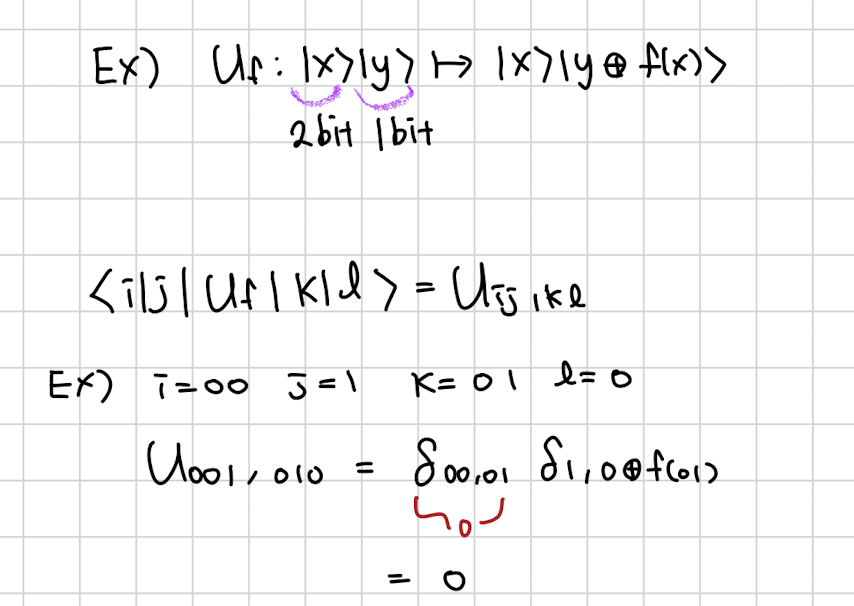 Ex) Uf : |x>|y> ↦ |x>|y ⊕ f(x)>
2bit 1bit
<i|j|Uf|k|l> = Uij,kl
Ex) i=00 j=1 k=01 l=0
U001,010 = δ00,01 δ1,0⊕f(01)
0
= 0